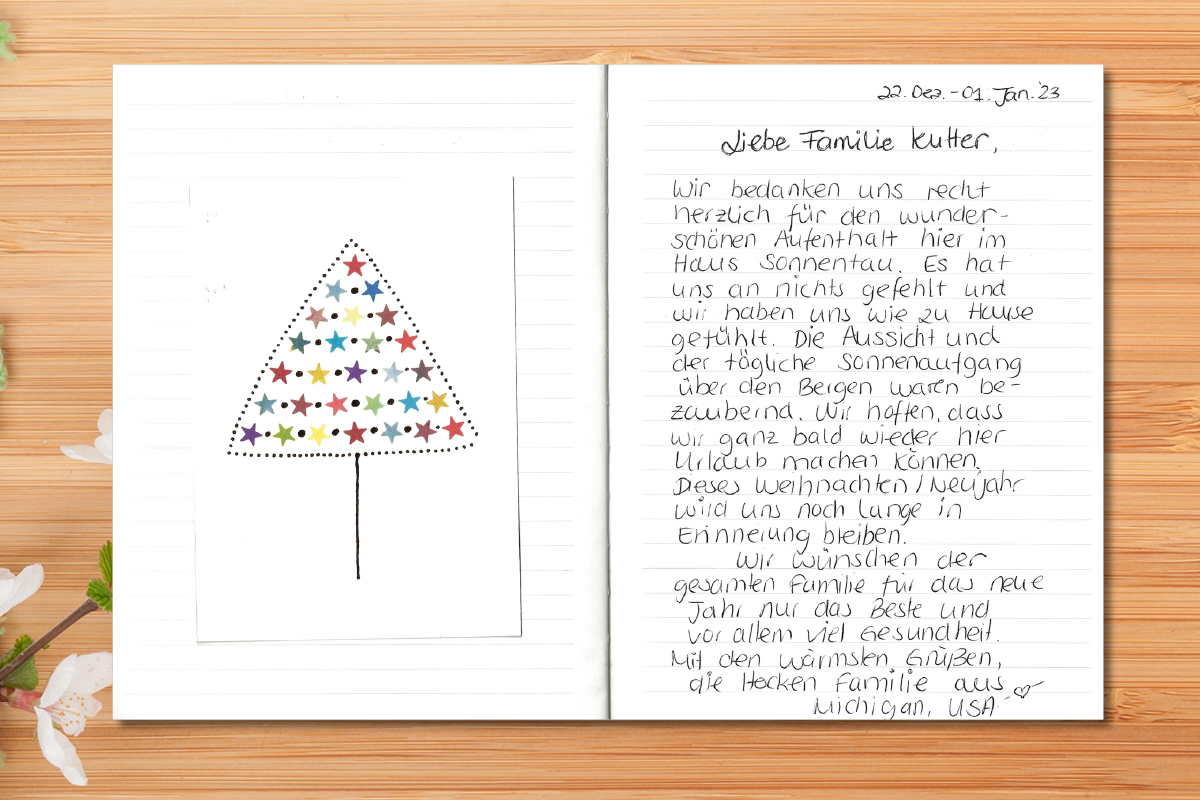 22. Dez. - 01. Jan. '23
Liebe Familie Kutter,
Wir bedanken uns recht
herzlich für den wunder-
schönen Aufenthalt hier im
Haus Sonnentau. Es hat
uns an nichts gefehlt und
wir haben uns wie zu Hause
gefühlt. Die Aussicht und
der tägliche Sonnenaufgang
über den Bergen waren be-
zaubernd. Wir hoffen, dass
wir ganz bald wieder hier
Urlaub machen können.
Dieses Weihnachten/Neujahr
wird uns noch lange in
Erinnerung bleiben.
Wir wünschen der
gesamten Familie für das neue
Jahr nur das Beste und
vor allem viel Gesundheit.
Mit den wärmsten Grüßen,
die Hocken Familie aus
Michigan, USA